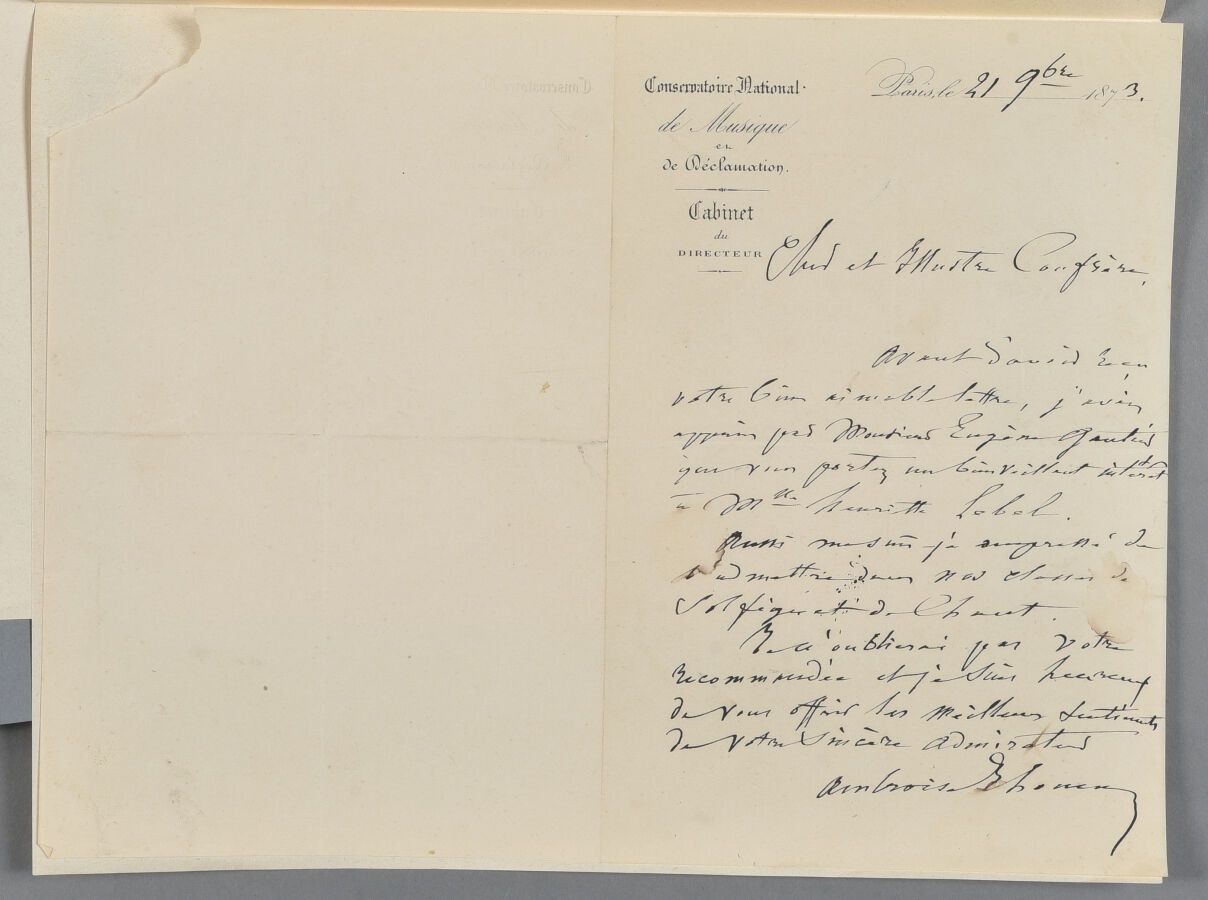 Conservatoire National
de Musique
et
de Déclamation.
Cabinet
du
DIRECTEUR
Paris, le 21 9bre 1873.
Cher et Illustre Confrère,
Avant d'avoir reçu
votre bien aimable lettre, j'avais
appris par Monsieur Eugène Gautier
que vous portez un bienveillant intérêt
à Mlle Henriette Lebel.
Aussi me suis-je empressé de
l'admettre dans nos classes de
Solfège et de Chant.
Je n'oublierai pas votre
recommandée et je suis heureux
de vous offrir les meilleurs sentiments
de votre sincère admirateur
Ambroise Thomas